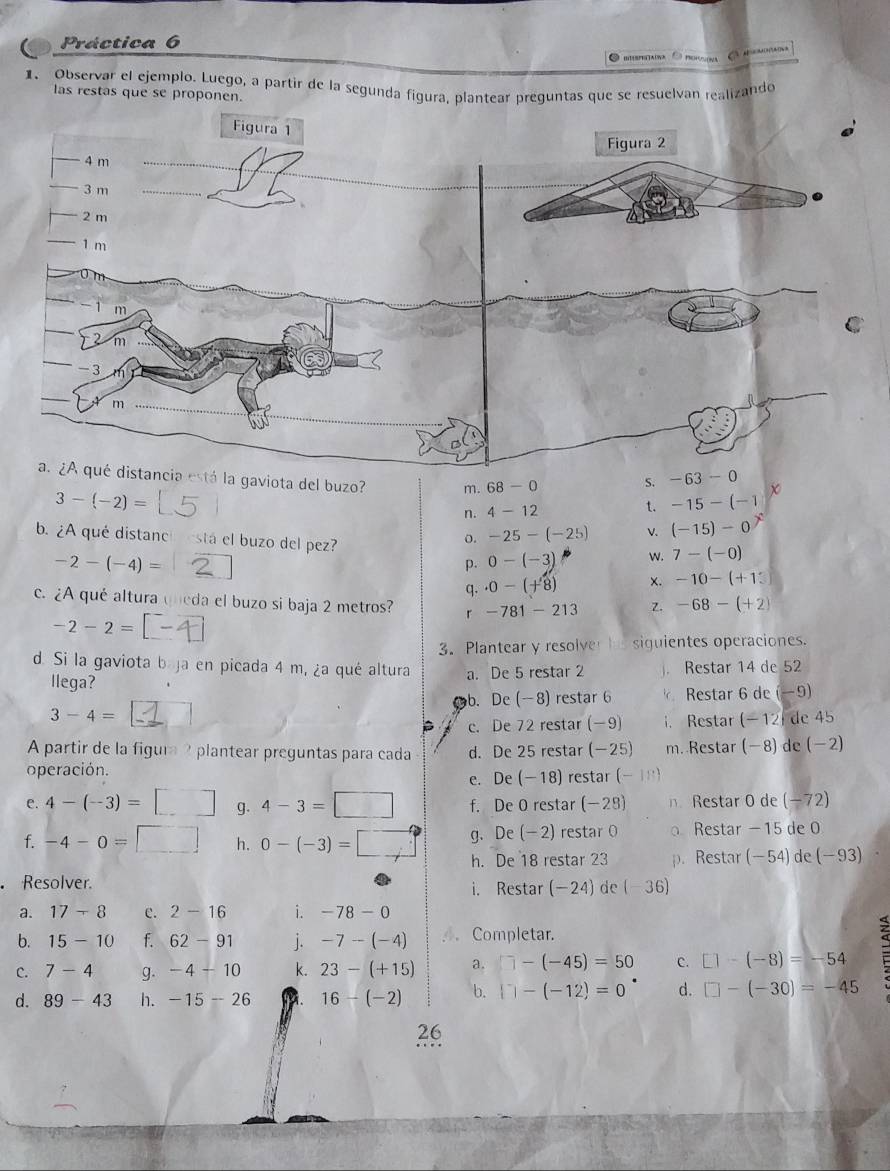 Práctica 6
1. Observar el ejemplo. Luego, a partir de la segunda figura, plantear preguntas que se resuelvan realizando
las restas que se proponen.
Figura 1
Figura 2
4 m
3 m
2 m
1 m
0 m
-1 m
2 m
-3 m
4 m
a. ¿A qué distancia está la gaviota del buzo?
3 - (-2) = 5
b. ¿A qué distanci está el buzo del pez?
-2 - (-4) = 2
c. ¿A qué altura queda el buzo si baja 2 metros?
-2 - 2 = -4
d. Si la gaviota baja en picada 4 m, ¿a qué altura
llega?
3 - 4 = -1
A partir de la figura 2 plantear preguntas para cada
operación.
e. 4 - (-3) = g. 4 - 3 =
f. -4 - 0 = h. 0 - (-3) =
Resolver.
a. 17 - 8 e. 2 - 16 i. -78 - 0
b. 15 - 10 f. 62 - 91 j. -7 - (-4)
c. 7 - 4 g. -4 - 10 k. 23 - (+15)
d. 89 - 43 h. -15 - 26 16 - (-2)
m. 68 - 0 s. -63 - 0
n. 4 - 12 t. -15 - (-1
o. -25 - (-25) v. (-15) - 0
p. 0 - (-3) w. 7 - (-0)
q. 0 - (+8) x. -10 - (+1
r -781 - 213 z. -68 - (+2)
3. Plantear y resolver las siguientes operaciones.
a. De 5 restar 2 j. Restar 14 de 52
b. De (-8) restar 6 k. Restar 6 de (-9)
c. De 72 restar (-9) i. Restar (-12) de 45
d. De 25 restar (-25) m. Restar (-8) de (-2)
e. De (-18) restar (-18)
f. De 0 restar (-28) n. Restar 0 de (-72)
g. De (-2) restar 0 o. Restar -15 de 0
h. De 18 restar 23 p. Restar (-54) de (-93)
i. Restar (-24) de (-36)
4. Completar.
a. - (-45) = 50 c. - (-8) = -54
b. - (-12) = 0 d. - (-30) = -45
26
SANTILLANA